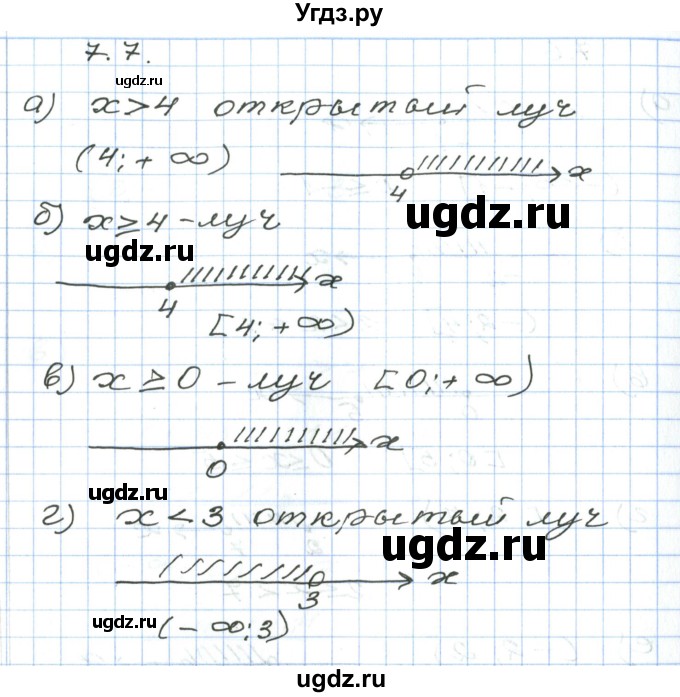 Угдз.ру
7.7.
ugdz.ru
а) x>4 открытый луч
(4; + ∞)
x
4
ugdz.ru
б) x≥4 - луч
ugdz.ru
x
4
[4; +∞)
ugdz.ru
в) x ≥ 0 - луч [0; + ∞)
x
0
ugdz.ru
г) x < 3 открытый луч
ugdz.ru
x
3
ugdz.ru
(- ∞; 3)
ugdz.ru